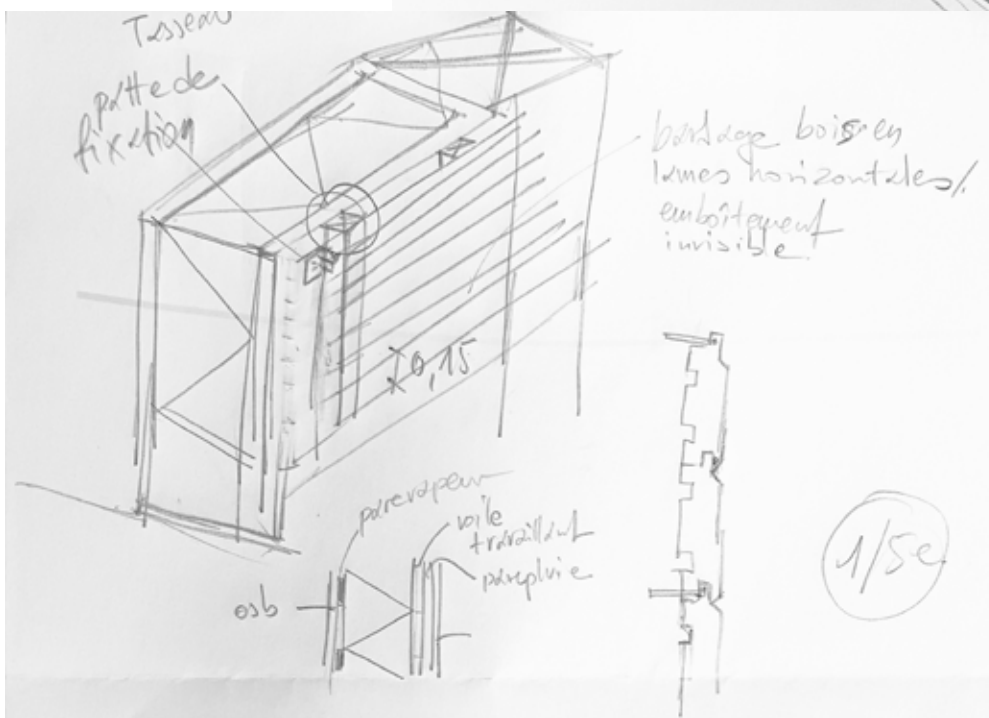 Tasseau
patte de
fixation
bardage bois en
lames horizontales/
emboîtement
invisible.
0,15
parevapeur
voile
travaillant
pareplvie
osb
1/5e